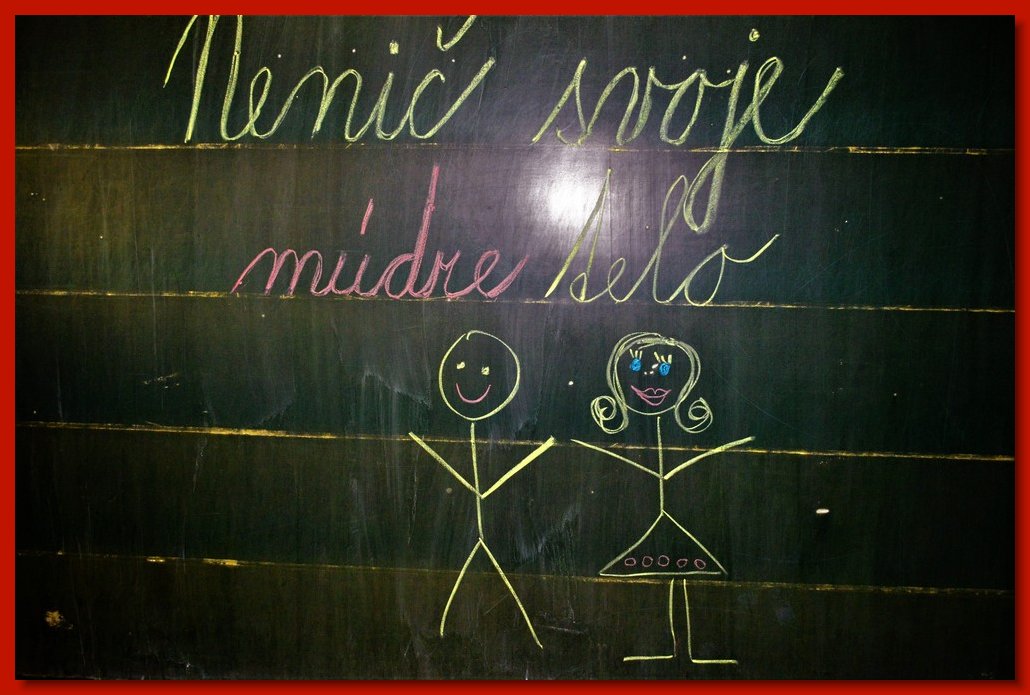 Nenič svoje
múdre telo